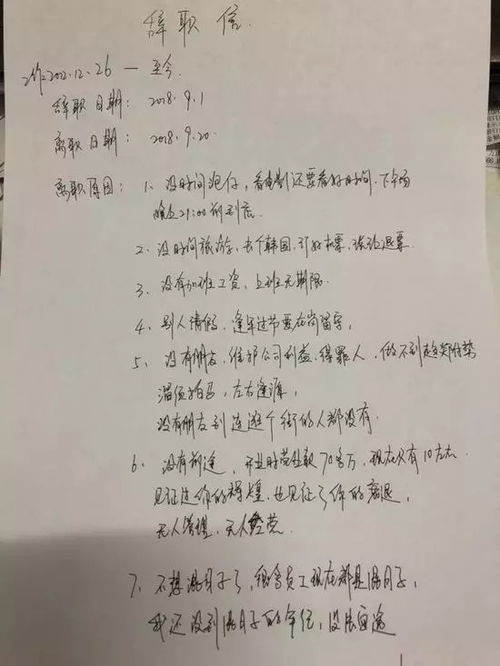 辞职信
工作2012.12.26 — 至今
辞职日期： 2018.9.1
离职日期： 2018.9.20.
离职原因： 1. 没时间泡仔，看电影还要看好时间，下午场
晚上21:00前到底
2. 没时间旅游，去个韩国，订好机票，还退票
3. 没有加班工资，上班无期限
4. 别人请假，逢年过节要在岗留守，
5. 没有朋友，维护公司利益，得罪人，做不到趋炎附势
溜须拍马，左右逢源，
没有朋友到连逛个街的人都没有.
6. 没有前途，开业时营业额70多万，现在只有10左右
见证过你的辉煌，也见证了你的衰退，
无人管理，无人经营.
7. 不想混日子了，很多员工现在都是混日子，
我还没到混日子的年纪，